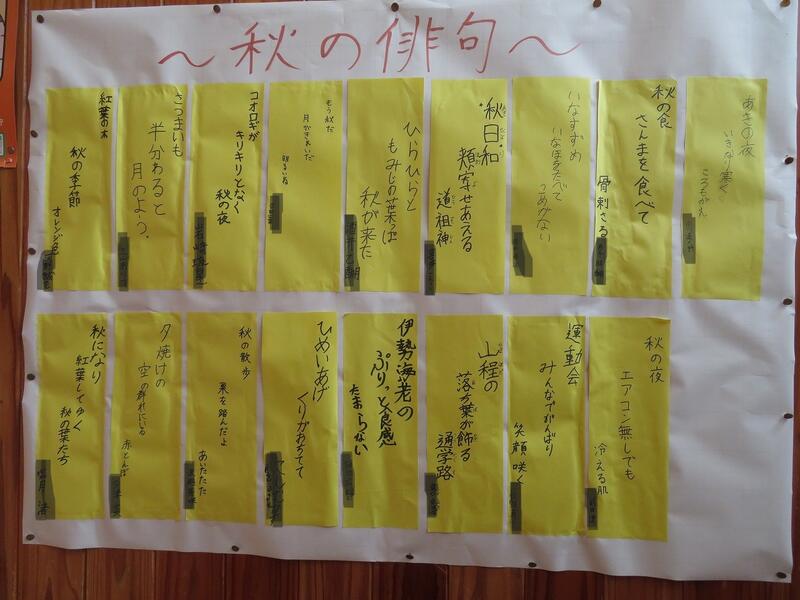 ～秋の俳句～
あきの夜
いきなり寒く
ころもがえ
秋の食
さんまを食べて
骨刺さる
いなすずめ
いなほをたべて
つめみない
秋日和
頬寄せあえる
道祖神
ひらひらと
もみじの葉っぱ
秋が来た
もう秋だ
月がきれいだ
明るいね
コオロギが
キリキリとなく
秋の夜
さつまいも
半分わると
月のよう。
紅葉の木
秋の季節
オレンジ色
秋の夜
エアコン無しでも
冷える肌
運動会
みんなでがんばり
笑顔咲く
山程の
落ち葉が飾る
通学路
伊勢海老の
ぷりっと食感
たまらない
ひめいあげ
くりがおちてて
秋の散歩
栗を踏んだよ
あいたたた
夕焼けの
空の群れにいる
赤とんぼ
秋になり
紅葉してゆく
秋の葉たち